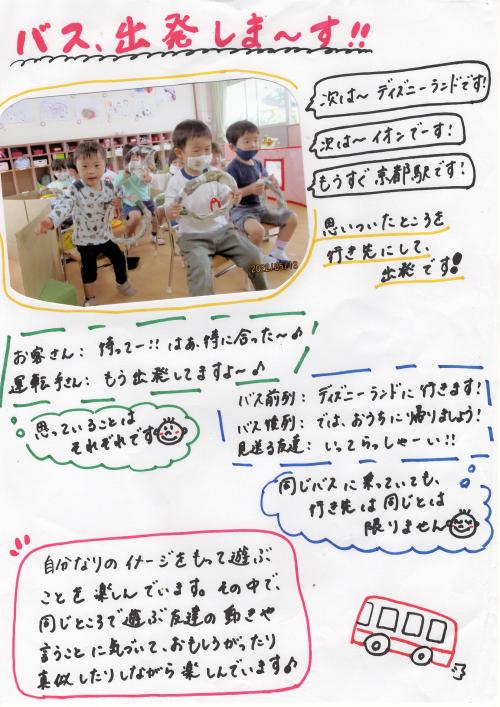 バス、出発しま〜す!!
次は〜 ディズニーランドです!
次は〜イオンでーす!
もうすぐ京都駅です!
思いついたところを
行き先にして、
出発です!
お客さん: 待ってー!! はぁ、時に合った〜♪
運転手さん: もう出発してますよ〜♪
思っていることは
それぞれです
バス前列: ディズニーランドに行きます!
バス後列: では、おうちに帰りましょう!
見送る友達: いってらっしゃーい!!
同じバスに乗っていても、
行き先は同じとは
限りません
自分なりのイメージをもって遊ぶ
ことを楽しんでいます。その中で、
同じところで遊ぶ友達の動きや
言うことに気づいて、おもしろがったり
真似したりしながら楽しんでいます♪